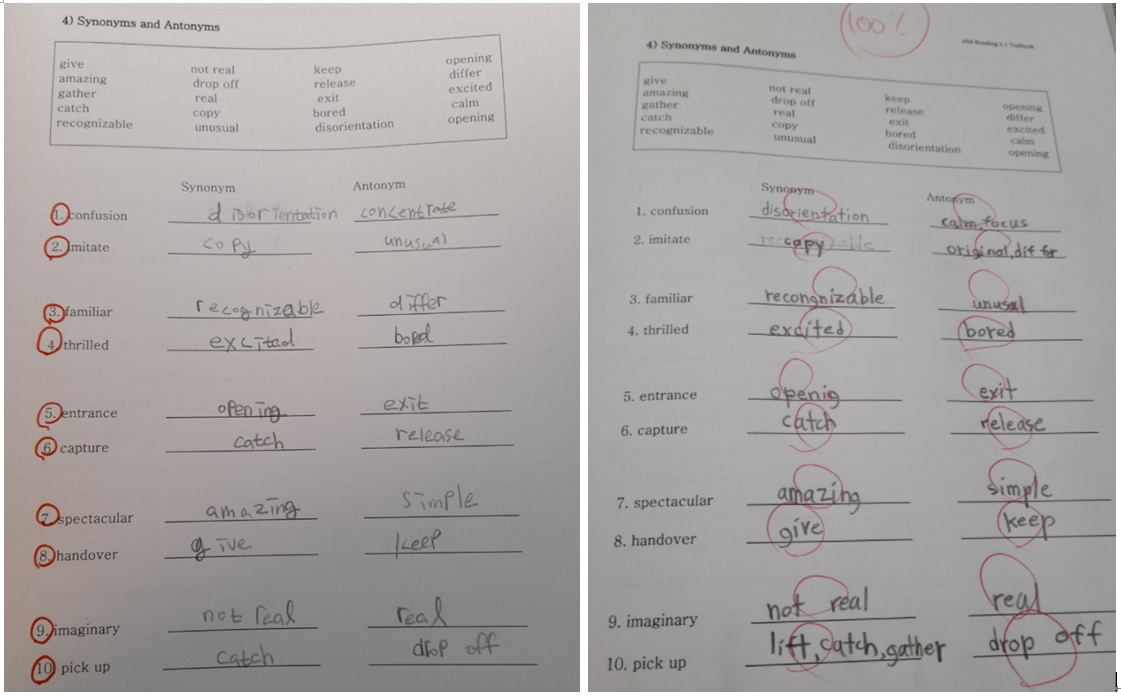 4) Synonyms and Antonyms
give not real keep opening
amazing drop off release differ
gather real exit excited
catch copy bored calm
recognizable unusual disorientation opening
Synonym Antonym
1. confusion disorientation concentrate
2. imitate copy unusual
3. familiar recognizable differ
4 thrilled excited bored
5. entrance opening exit
6 capture catch release
7. spectacular amazing simple
8. handover give keep
9. imaginary not real real
10 pick up catch drop off
100%
4) Synonyms and Antonyms
give not real keep opening
amazing drop off release differ
gather real exit excited
catch copy bored calm
recognizable unusual disorientation opening
Synonym Antonym
1. confusion disorientation calm, focus
2. imitate copy original,
3. familiar recongnizable unusal
4. thrilled excited bored
5. entrance openig exit
6. capture catch release
7. spectacular amazing simple
8. handover give keep
9. imaginary not real real
10. pick up lift, catch, gather drop off